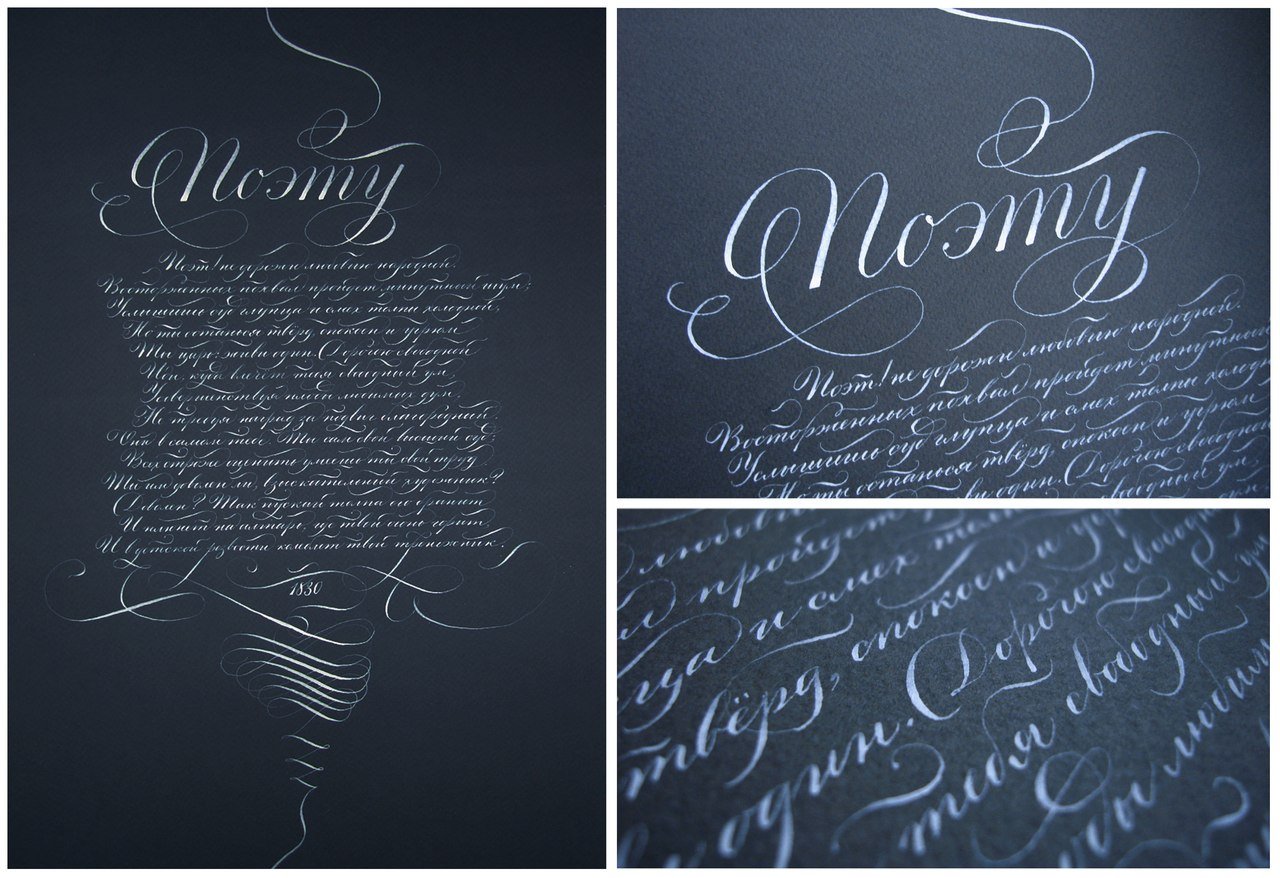 Поэту
Поэт! не дорожи любовию народной.
Восторженных похвал пройдет минутный шум;
Услышишь суд глупца и смех толпы холодной,
Но ты останься твёрд, спокоен и угрюм
Ты царь: живи один. Дорогою свободной
Иди, куда влечет тебя свободный ум,
Усовершенствуя плоды любимых дум,
Не требуя наград за подвиг благородный.
Они в самом тебе. Ты сам свой высший суд;
Всех строже оценить умеешь ты свой труд.
Ты им доволен ли, взыскательный художник?
Доволен? Так пускай толпа его бранит
И плюет на алтарь, где твой огонь горит,
И в детской резвости колеблет твой треножник.
1830
Поэту
Поэт! не дорожи любовию народной.
Восторженных похвал пройдет минутный
Услышишь суд глупца и смех толпы холодн
Но ты останься твёрд, спокоен и угрюм
ви один. Дорогою свободн
свободный ум,
любови
л пройдет
пца и смех толп
твёрд, спокоен и угр
один. Дорогою свобод
тебя свободный у
ды любим